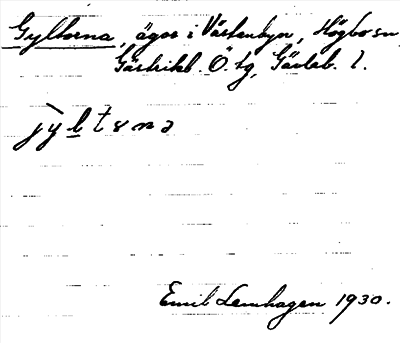 Gyltorna, ägor i Västerbyn, Högbo sn
Gästrikl. Ö. tg, Gävleb. l.
jỳltɤnɔ
Emil Lenhagen 1930.